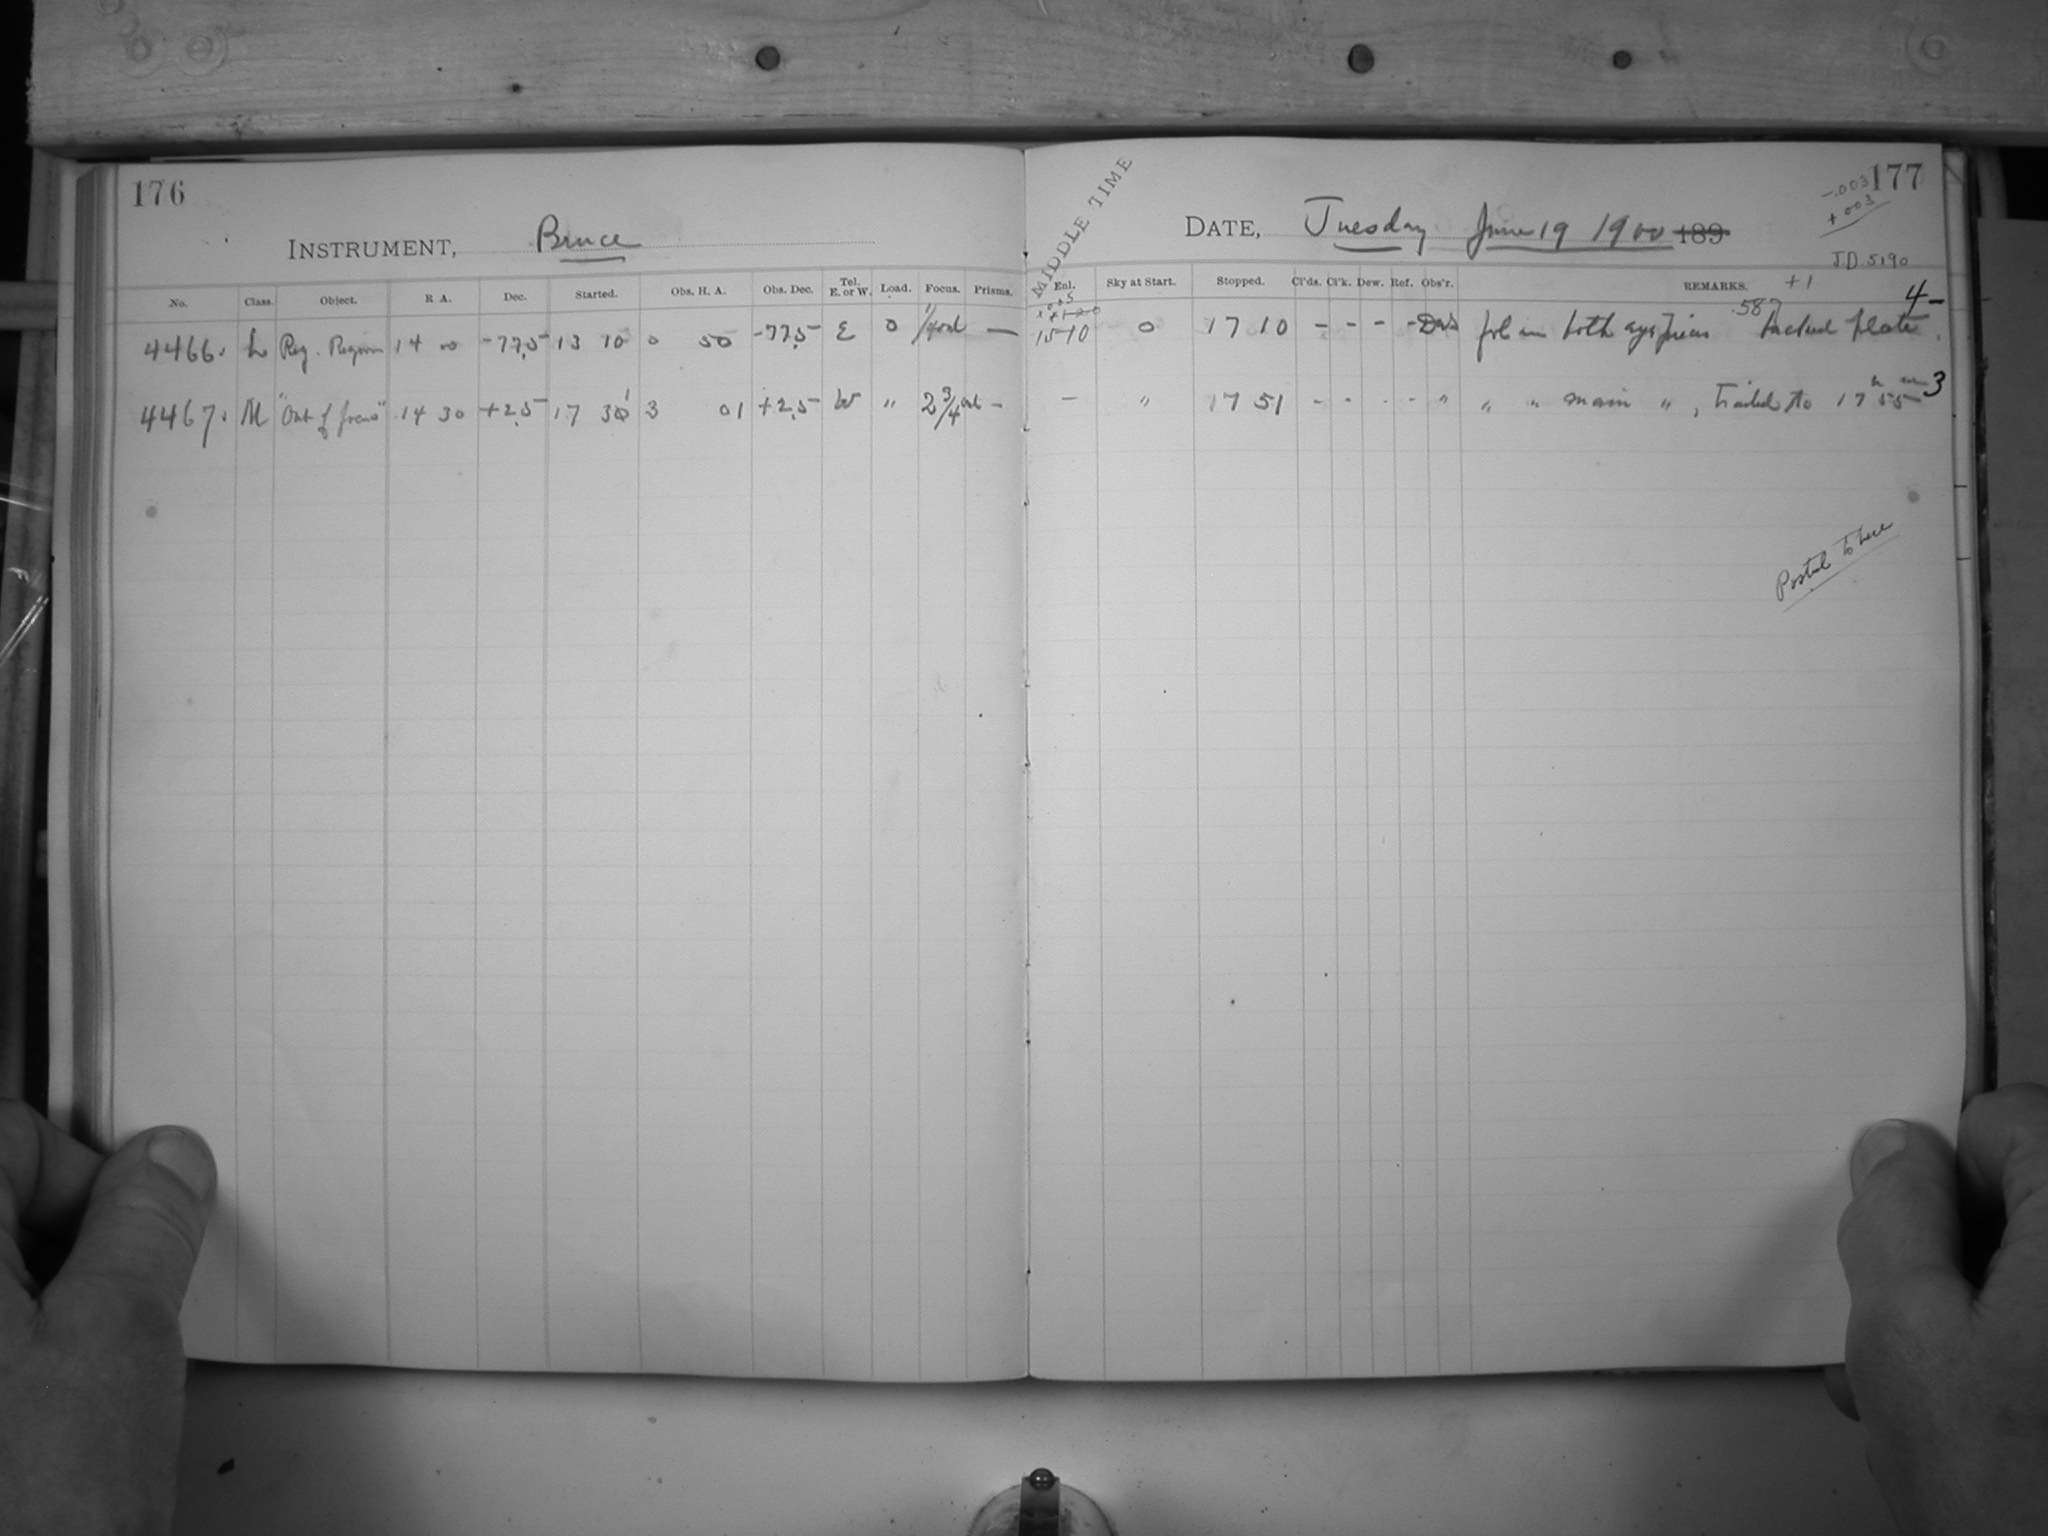 176
INSTRUMENT, Bruce
No. Class. Object. R A. Dec. Started. Obs. H. A. Obs. Dec. Tel. E. or W. Load. Focus. Prisms.
4466. L Reg. Region 14 00 -77.5 13 10 0 50 -77.5 E 0 —
4467. M "Out of focus" 14 30 +2.5 17 30 3 01 +2.5 W " 2 3/4 —
177
-.003
+003
MIDDLE TIME
DATE, Tuesday June 19 1900 189
J.D. 5190
Enl. Sky at Start. Stopped. Cl'ds. Cl'k. Dew. Ref. Obs'r. REMARKS. +1
.587 4-
15 10 0 17 10 - - - - fol in both backed plate.
— " 17 51 - - - - " " " main ", Trailed to 17 h 55 m 3
Posted to here